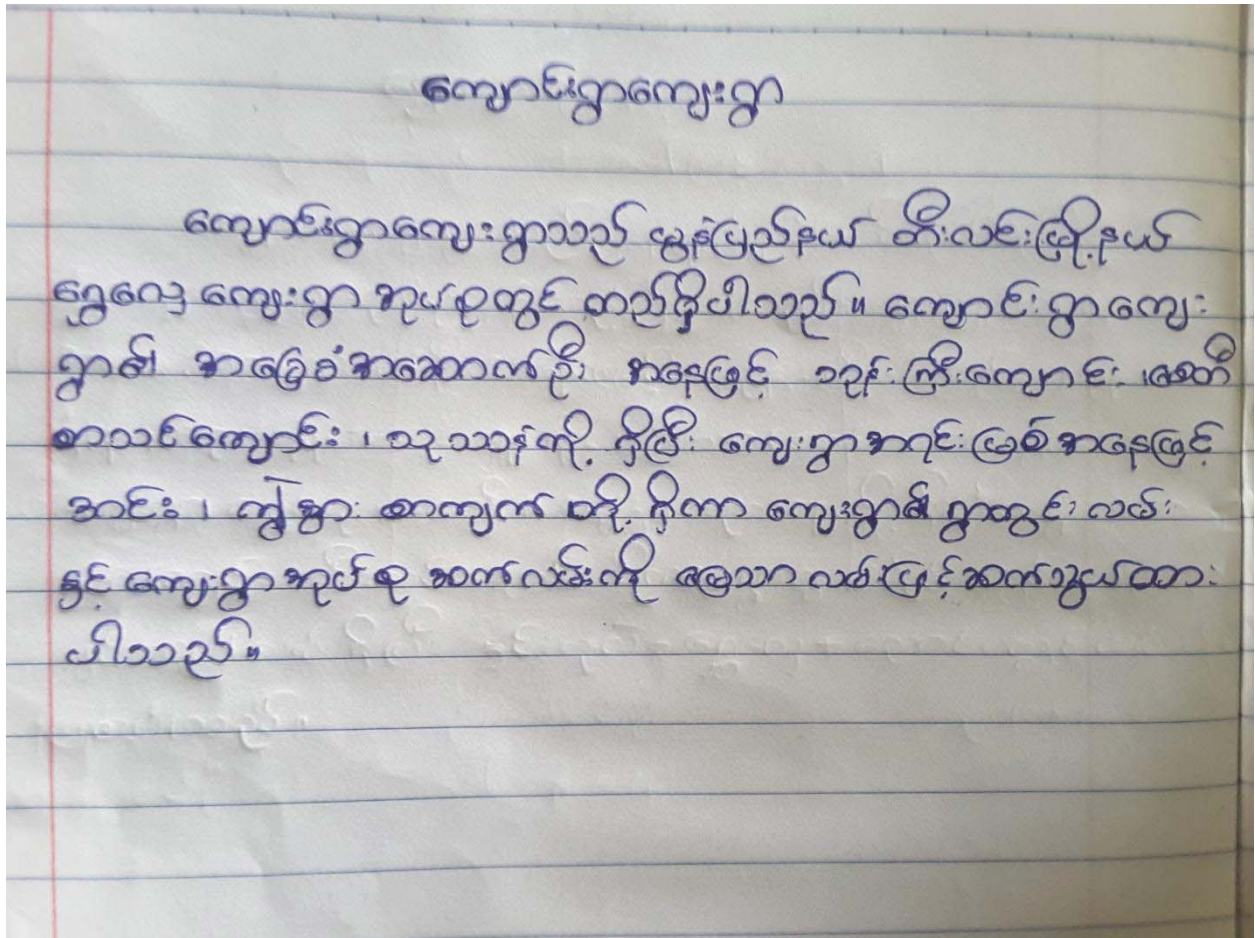 ကျောင်းရွာကျေးရွာ
ကျောင်းရွာကျေးရွာသည် မွန်ပြည်နယ် ဘီးလင်းမြို့နယ်
ရွှေလှေ ကျေးရွာ အုပ်စုတွင် တည်ရှိပါသည်။ ကျောင်းရွာကျေး
ရွာ၏ အခြေခံအဆောက်ဦး အနေဖြင့် ဘုန်းကြီးကျောင်း ၊စေတီ
စာသင်ကျောင်း ၊ သုသာန်တို့ ရှိပြီး ကျေးရွာအရင်းမြစ်အနေဖြင့်
အင်း ၊ ကျွဲစား စာကျက် တို့ ရှိကာ ကျေးရွာ၏ ရွာတွင်း လမ်း
နှင့် ကျေးရွာအုပ်စု ဆက်လမ်းကို မြေသာလမ်းဖြင့်ဆက်သွယ်ထား
ပါသည်။